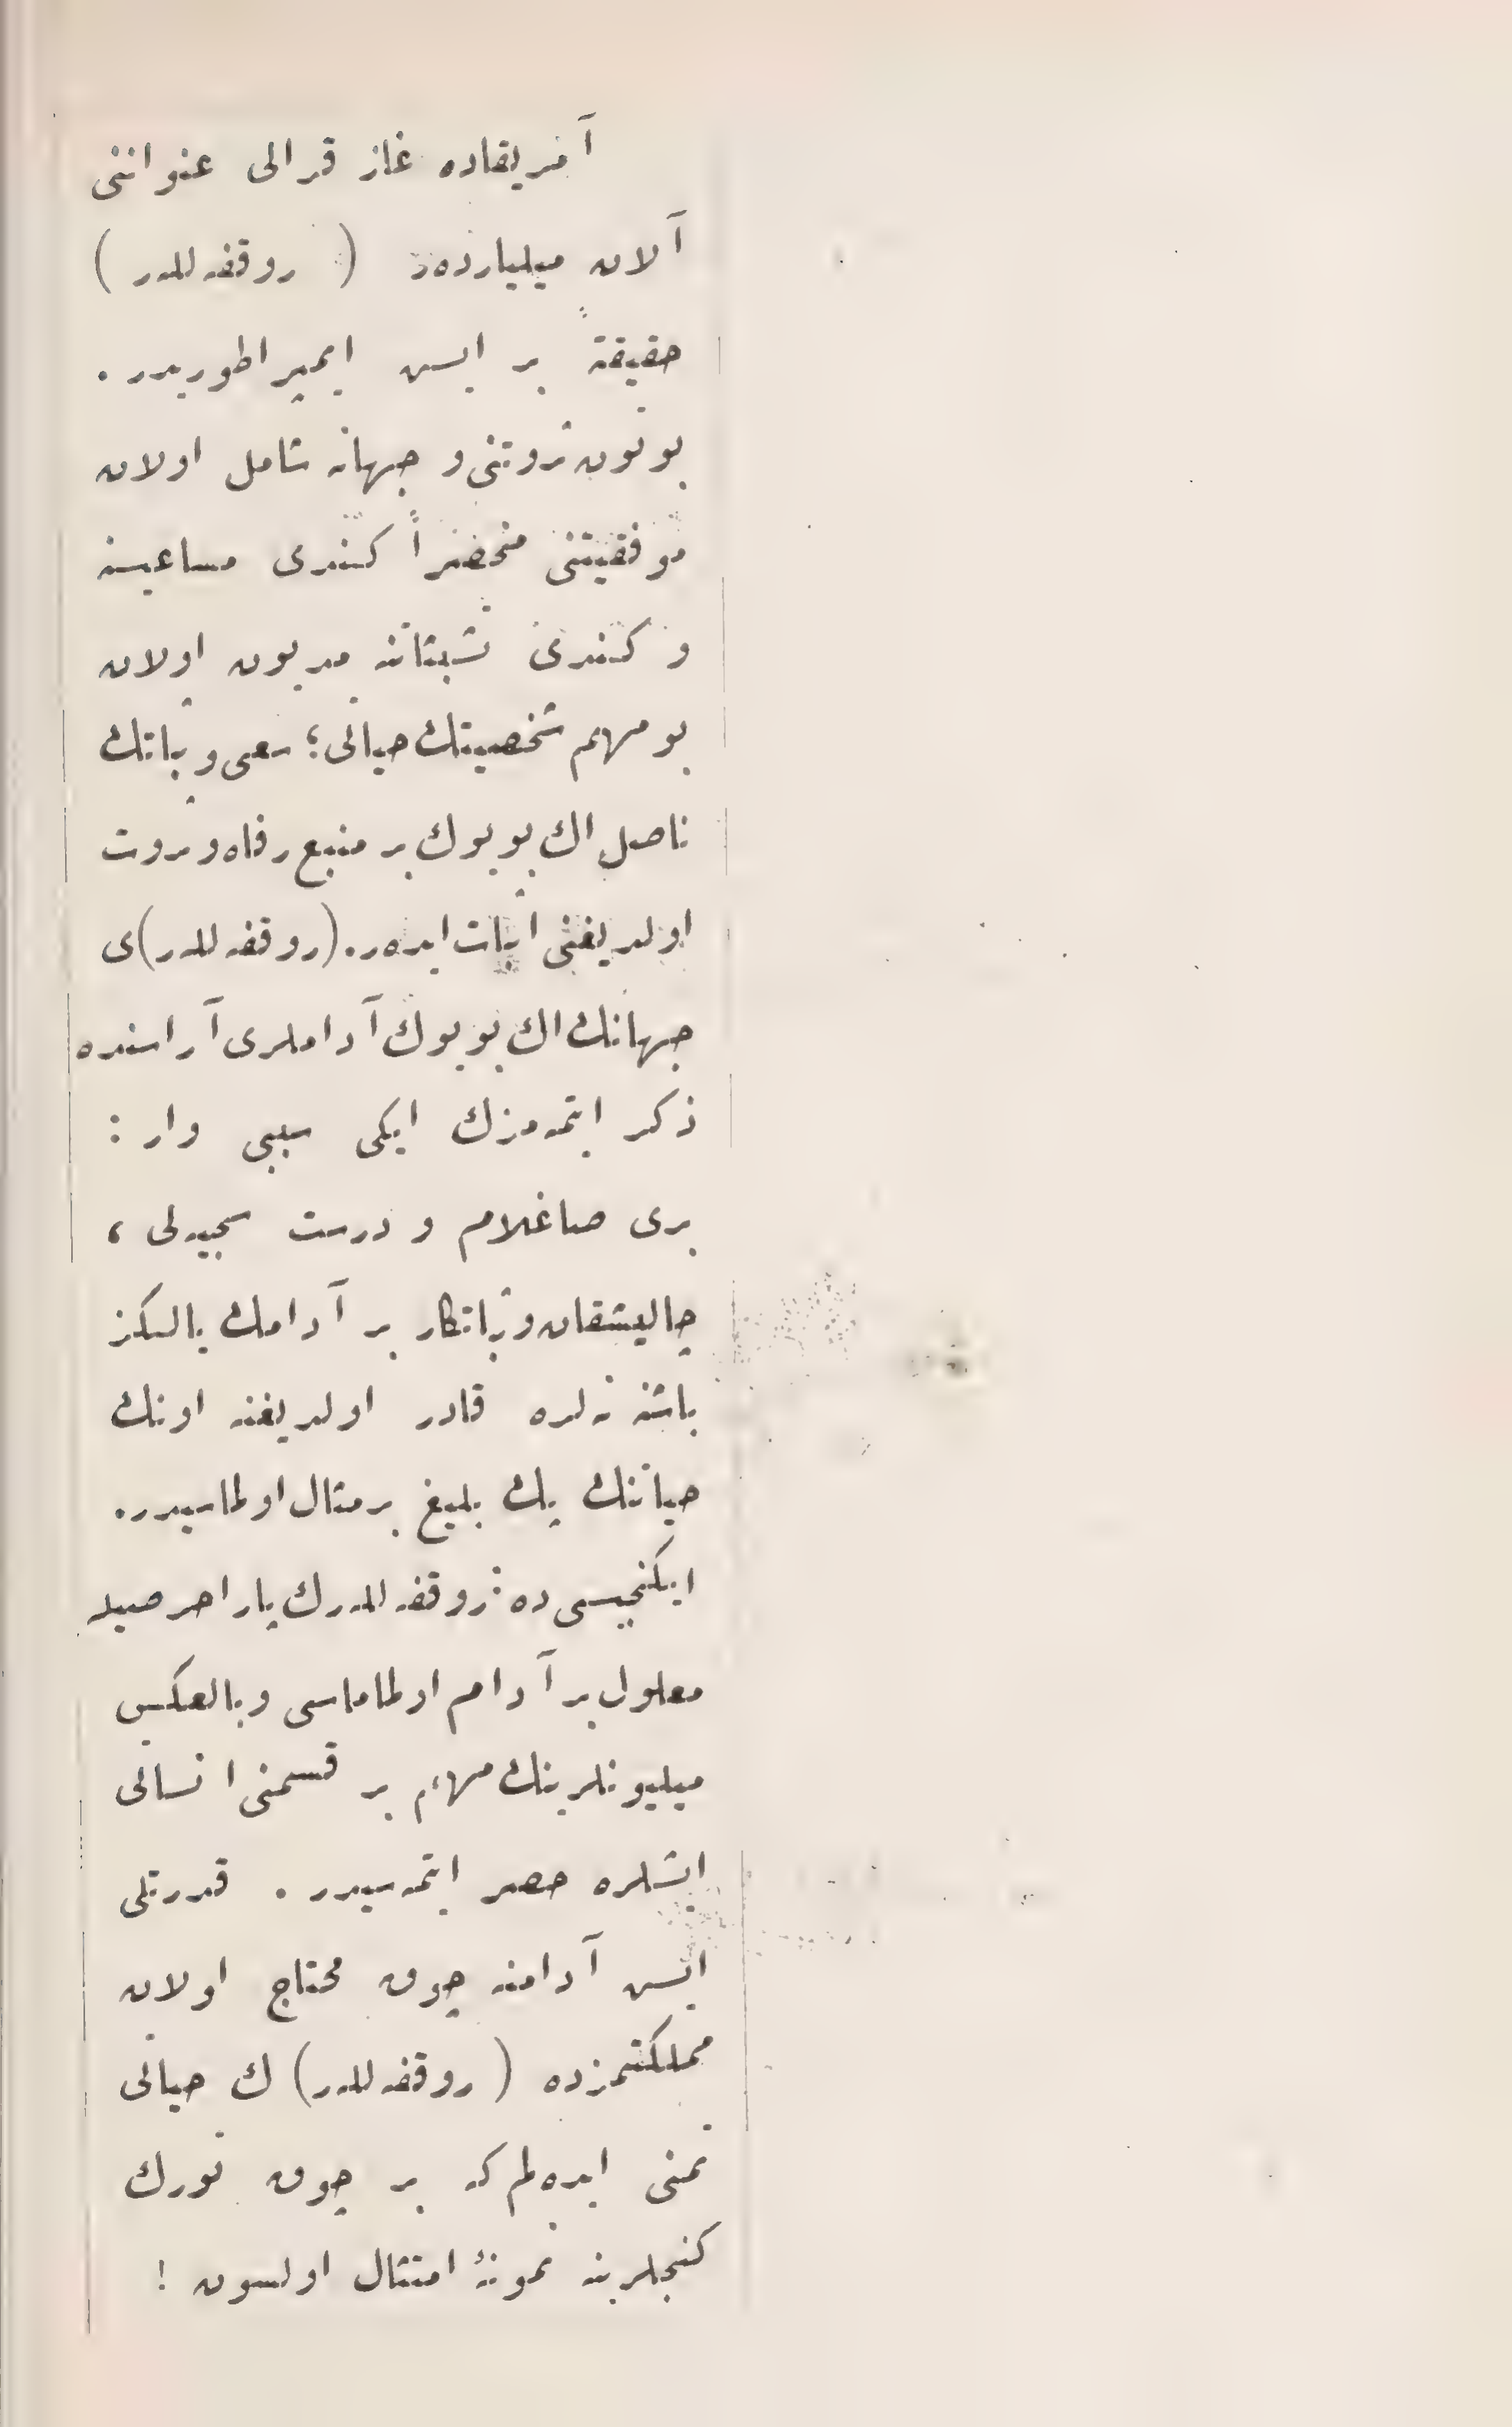 آمریقاده غاز قرالی عنواننی
آلان میلیاردهر ( روقفه‌للەر )
حقیقةً بر ایش ایمپراطوریدر .
بوتون ثروتنی و جهانه شامل اولان
موفقیتنی منحصراً كندی مساعیسنه
و كندی تشبثاتنه مدیون اولان
بو مهم شخصیتك حیاتی؛ سعی و ثباتك
ناصل اك بویوك بر منبع رفاه و ثروت
اولدیغنی اثبات ایده‌ر. (روقفه‌للەر)ی
جهانك اك بویوك آداملری آراسنده
ذكر ایتمه‌مزك ایكی سببی وار :
بری صاغلام و درست سجیه‌لی ،
چالیشقان و ثباتكار بر آدامك یالكز
باشنه نه‌لره قادر اولدیغنه اونك
حیاتنك پك بلیغ بر مثال اولماسیدر.
ایكنجیسی ده: روقفه‌للەرك پارا حرصیله
معلول بر آدام اولماماسی و بالعكس
میلیونلرینك مهم بر قسمنی انسانی
ایشلره حصر ایتمه‌سیدر . قدرتلی
ایش آدامنه چوق محتاج اولان
مملكتمزده ( روقفه‌للەر) ك حیاتی
تمنی ایده‌لم كه بر چوق تورك
كنجلرینه نمونهٔ امتثال اولسون !